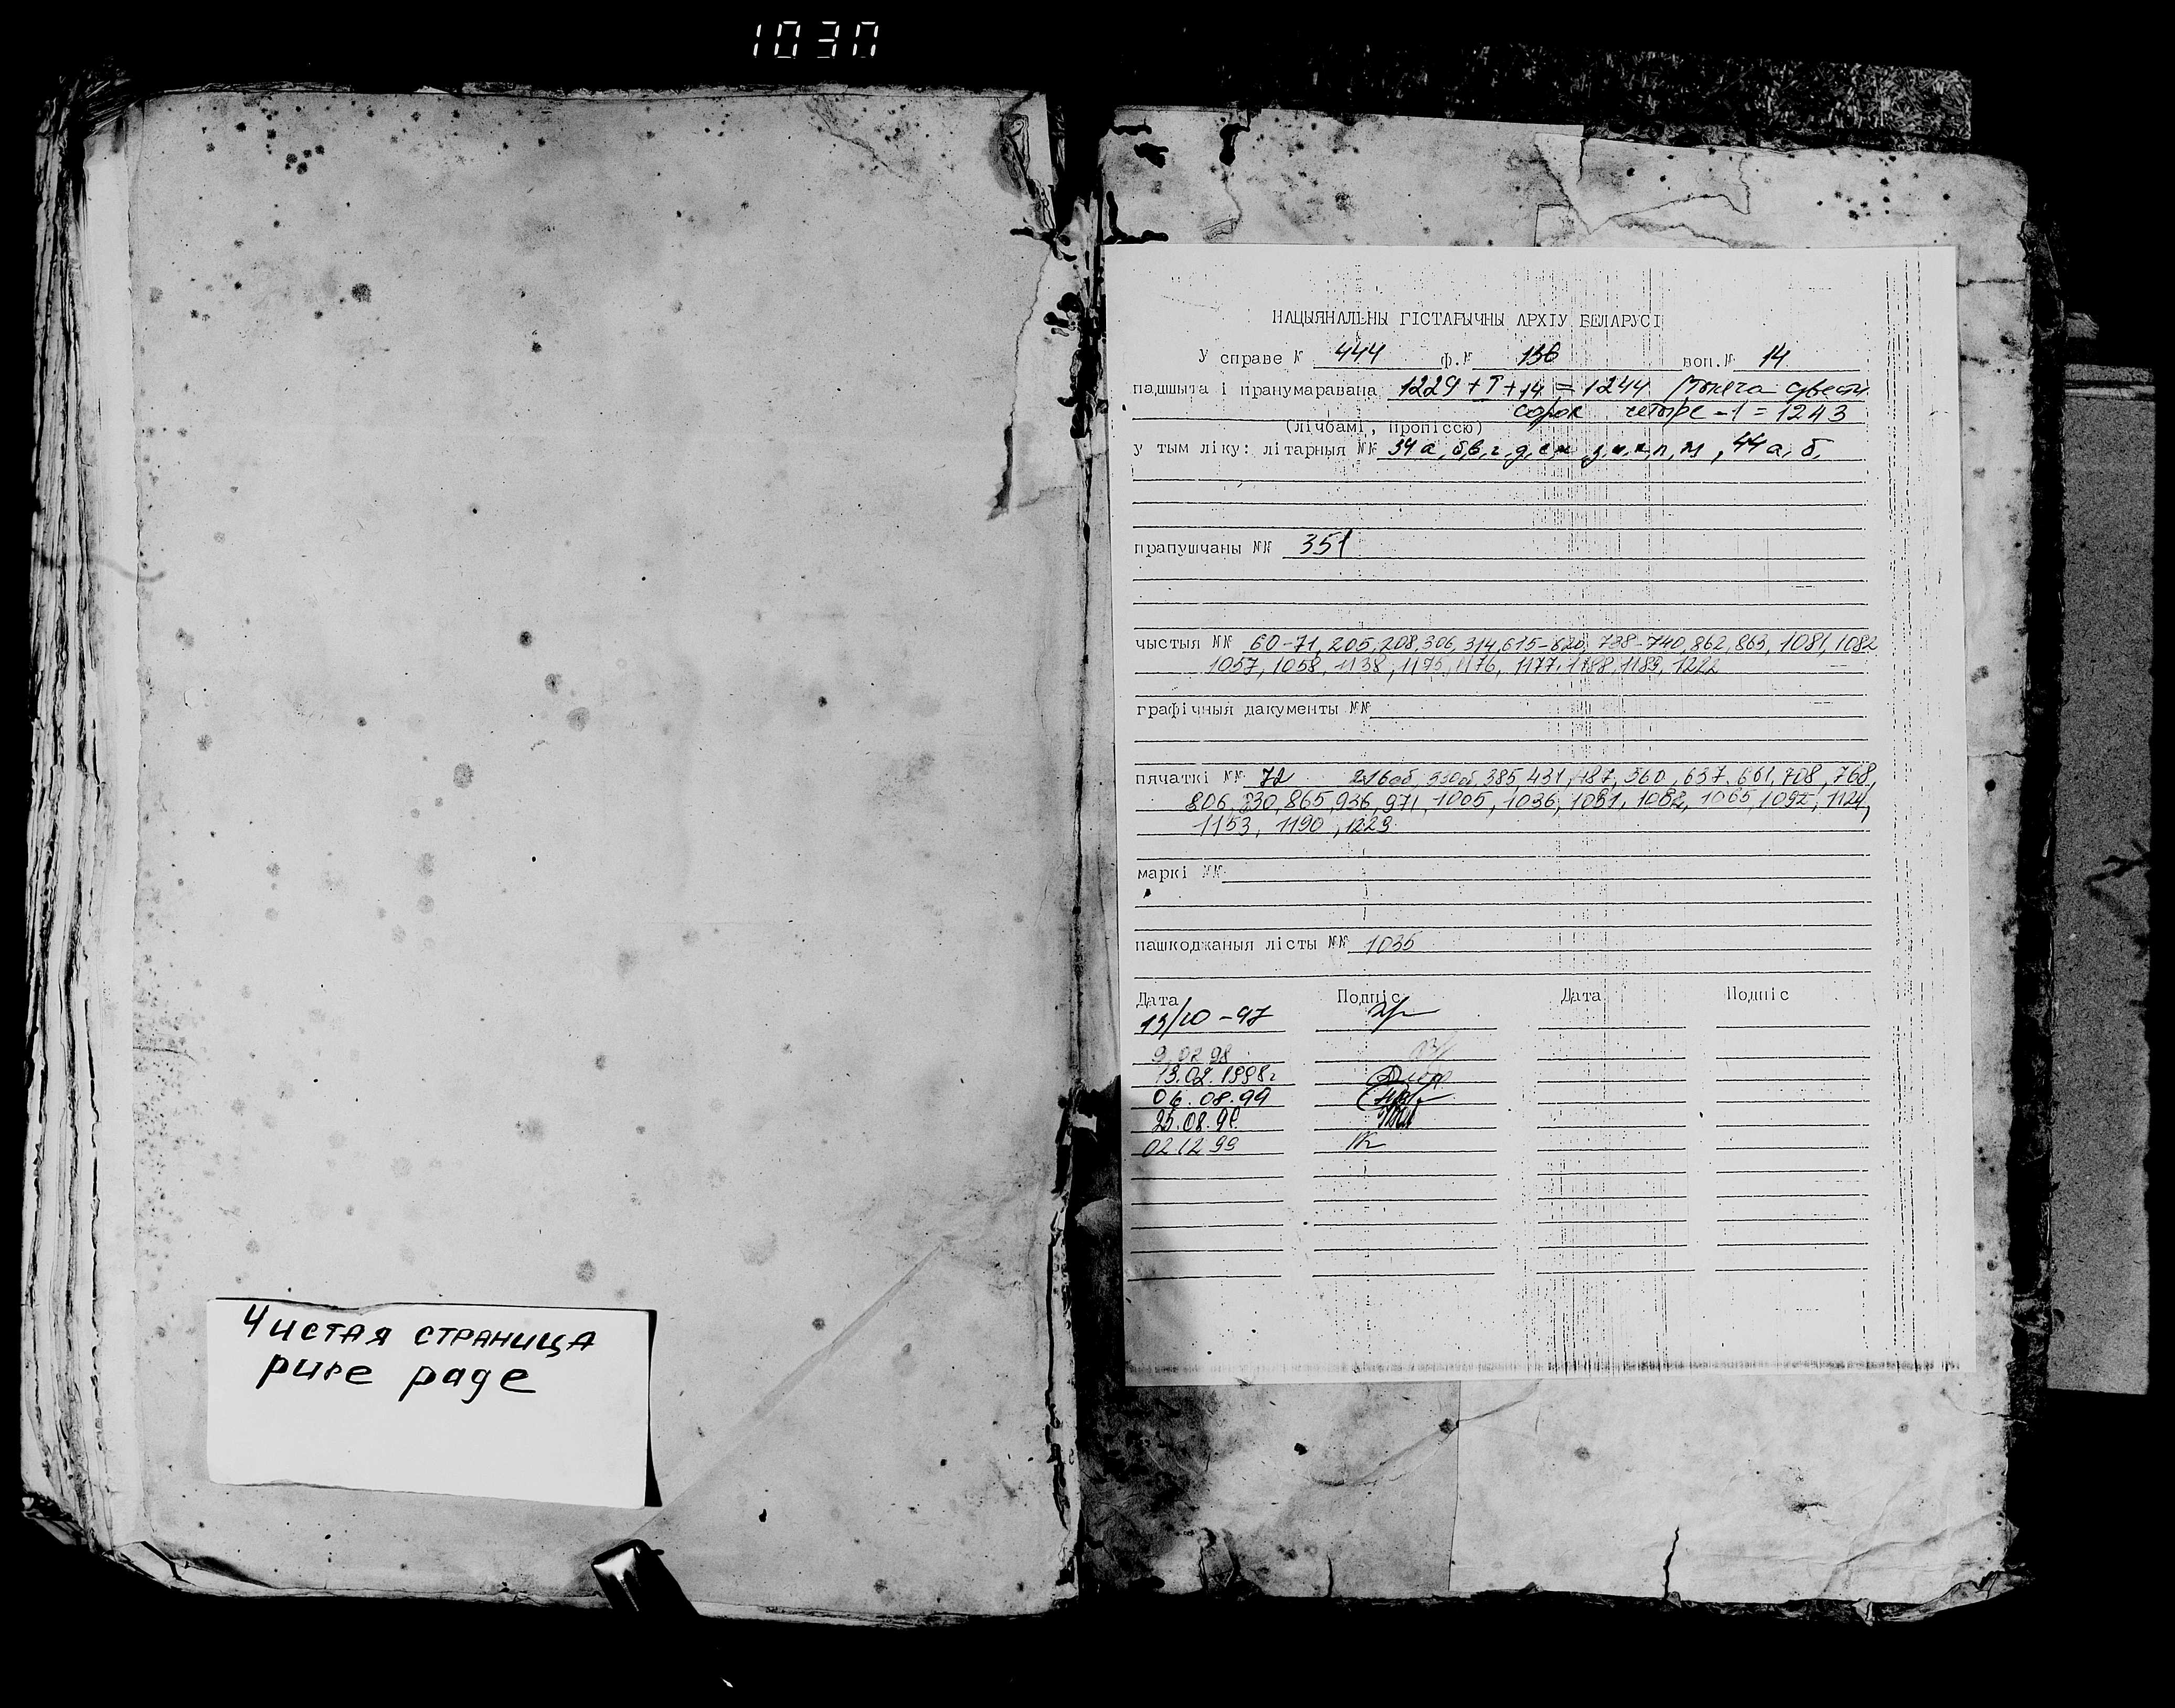 1030
Чистая страница
pure page
НАЦЫЯНАЛЬНЫ ГІСТАРЫЧНЫ АРХІУ БЕЛАРУСІ
У справе № 444 ф.№ 136 воп.№ 14
падшыта і пранумаравана 1229 + + 14 = 1244
сорок четыре - 1 = 1243
(лічбамі, пропіссю)
у тым ліку: літарныя №№ 34 а, б, в, г, д, е, ж, з, и, к, л, м, 44 а, б,
прапушчаны №№ 351
чыстыя №№ 60-71, 205, 208, 306, 314, 615-620, 738-740, 862, 863, 1081, 1082
1057, 1058, 1138, 1175, 1176, 1177, 1188, 1189, 1222
графічныя дакументы №№
пячаткі №№ 72 216об, 330об, 385, 431, 487, 560, 637, 661, 708, 768,
806, 830, 865, 936, 971, 1005, 1036, 1081, 1082, 1065, 1092, 1124,
1153, 1190, 1229
маркі №№
пашкоджаныя лісты №№ 1035
Дата Подпіс Дата Подпіс
13/10-97
9.02.98
13.02.1998г
06.08.99
25.08.99
02.12.99